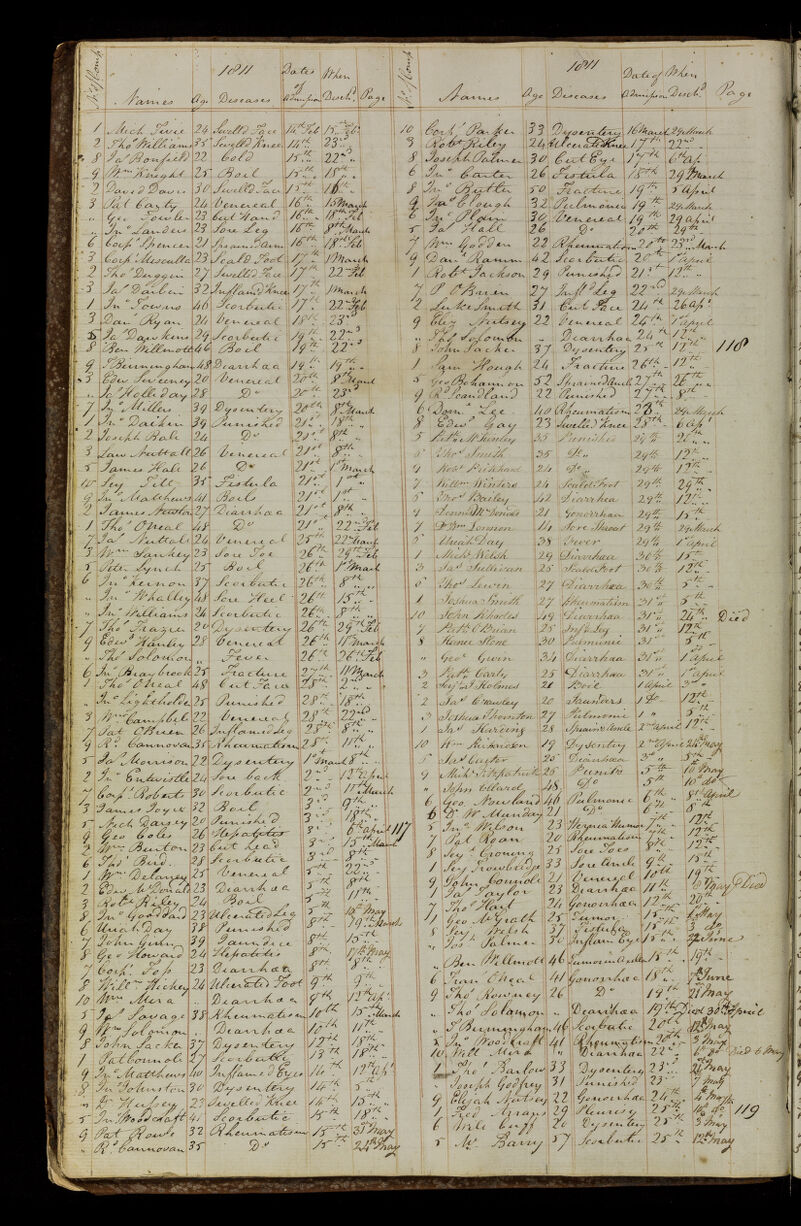 No. of Comp. Names Age 1811 Diseases Dates of Admission When Disch.d Page
1 Mich Tivie 24 Swell'd Face 14th Feb 15th Feb
2 Tho.s Williams 35 Swell'd Knee 14th 23rd
8 Ja.s Bonfield 22 Cold 15th 22nd
9 Wm Knight 25 Boil 15th 18th
2 David Davis 30 Swell'd Face 15th 16th
3 Pat Carty 24 Venereal 16th 15 March
" Geo Fowler 23 Cut Hand 16th 18th Feb
" Jn.o Sanders 23 Sore Leg 16th 8th March
6 Corp.l Spencer 21 16th 18th Feb
3 Corp.l 23 Scald Foot 17th 1 March
2 Tho.s Duggin 27 Swelled Face 17th 22nd Feb
3 Ja.s Durbin 32 Inflam'd Knee 17th 1 March
1 Jn.o Towns 46 Scorbutic 17th 22nd Feb
3 Dan Ryan 24 Venereal 18th 23rd
5 Ja.s Dawkins 29 Scorbutic 19th 22nd
8 Ben Willmott 46 Boil 19th 22nd
9 T Birmingham 48 Diarrhaa 19th 19th
3 Edw Sweeney 20 Venereal 20th 8th March
" Ja.s Holleday 28 D.o 20th 23rd
7 Jn.o Miller 39 Dysentery 20th 8th March
1 Jn.o Daiken 39 Punished 21st 18th
2 Joseph Bale 24 D.o 21st 8th
3 Law Nuttall 26 Venereal 21st 8th
5 James Hale 26 D.o 21st 1st March
10 Jey Till 35 Fistula 21st 1st
9 Jn.o Matthews 41 Boils 21st 1st
2 James Newton 27 Diarrhaa 21st 8th
1 Tho.s ONeal 48 D.o 21st 22nd Feb
7 Ja.s Nuttall 24 Venereal 25th 22nd March
3 Wm Sankey 23 Sore Toe 26th 29th Feb
5 Peter Lynch 25 Boil 26th 1st March
6 Jn.o Kernon 37 Scorbutic 26th 8th
" Jn.o Whalley 48 Sore Heel 26th 15th
" Jn.o Williams 24 Scorbutic 26th 8th
7 Tho.s Frazier 20 Dysentery 26th 29th Feb
9 Edw.d Hanley 28 Venereal 26th 15 March
" Tho.s Solomon " Fever 26th 26th Feb
6 Jn.o Braybrook 25 Fracture 27th 11 March
1 Tho.s ONeal 48 Cut Face 28th 2nd
" Jn.o Lightholder 25 Punished 28th 18th
3 Wm Campbil 22 Venereal 28th 22nd
7 Pat OBrien 26 Inflamed Leg 28th 8th
9 R.d Cannovan 35 Rheumatism 28th 11th
5 Ja.s Morrison 22 Dysentery 1st March 8th
2 Jn.o Entwistle 24 Sore back 2nd 12th April
7 Corp.l Roberts 30 Scorbutic 2nd 11th March
3 James Joyce 32 Boil 3rd 9th
5 Mich Darsey 20 Punished 3rd 18th
9 Geo Coles 26 Hepatites 3rd 6th April 117
3 Wm Burton 23 Cut head 3rd 15th March
6 Tho.s Bird 28 Scorbutic 3rd 8th
1 Wm Delaney 25 Venereal 5th 22nd
2 Edw McDonald 23 Diarrhaa 5th 8th
3 Rob.t Riley 24 Boil 5th 15th
8 Jn.o Goddard 23 Ulcerated Leg 8th 10th May
6 Uriah Day 38 Punished 8th 19th March
7 John Gunn 39 Jaundice 8th 15th
8 Geo Howard 24 Hepatites 8th 17th May
7 Corp.l Fop 23 Diarrhaa 8th 8th
8 Will.m Hickey 24 Ulcerated Foot 9th 9th
10 Wm Mera " Diarrhaa 9th 12th Ap.l
5 Ja.s Savage 38 Rheumatism 10th 15th March
9 Wm Solomon " Diarrhaa 10th 11th
8 John Sacker 37 Dysentery 12th 18th
" Pat Connole 27 Scorbutic 13th 18th
9 Jn.o Matthews 40 Inflamed Eyes 14th 12th Ap.l
8 Jn.o Johnston 30 Dysentery 14th 5th
" Hussey 23 Swelled Knee 14th 15th
5 Jn.o Woodcraft 41 Scorbutic 15th 18th
9 Pat Rowe 32 Rheumatism 15th 31st May
" R.d Cannovan 35 D.o 15th 24th May
No. of Comp. Names Age 1811 Diseases Date of Admission When Disch.d Page
10 Corp.l Parker 33 Dysentery 16 March 29 March
3 Rob.t Riley 24 Ulcerated Knee 17th 22nd
8 Joseph Palmer 30 Cut Eye 17th 6th Ap.
6 Jn.o Carter 26 Fistula 18th 29 March
8 Jn.o Butler 50 Fracture 19th 5 April
9 Ja.s Clough 32 Pulmonia 19th 29 March
6 Jn.o Plain 30 Venereal 19th 29 April
5 Ja.s Hall 26 D.o 20th 29th
7 Wm Godden 22 Rheumatism 20th 23rd March
9 Dan.l Ramm 42 Scorbutic 20th 1st April
1 Rob.t Jackson 29 Punished 21st 12th
7 P OBrien 27 Infl.d Leg 22nd 29 March
2 Luke Smith 31 Cut Face 24th 26 Ap.l
9 Eliz Nutsey 22 Venereal 24th 1st April
" Tho.s Solomon " Diarrhaa 24th 12th
8 John Sacker 37 Dysentery 25th 12th 118
1 Sam Hough 24 Fracture 26th 12th
5 Geo Bohannon 52 Sprained Ancle 27th 26th
9 R.d Scandland 22 Punished 27th 8th
6 Dom.k Lee 40 Rheumatism 28th 29 March
8 Edw.d Gay 23 Swelled Knee 28th 6 Ap.l
5 Pet.r McKinley 35 Punished 29th 26th
6 Tho.s Smith 35 D.o 29th 12th
4 Rob.t Pickham 24 D.o 29th 12th
7 Will.m Winters 24 Scald Foot 29th 29th
5 Tho.s Bailey 42 Diarrhea 29th 12th
4 Dennis 21 Gonorrhaa 29th 15th
7 Wm Lonnon 14 Sore Throat 29th 29 March
6 Uriah Day 38 Fever 29th 1st April
1 Mich.l Welsh 29 Diarrhaa 30th 15th
3 Ja.s Sullivan 25 Scald Foot 30th 12th
6 Tho.s Lewin 27 Diarrhaa 30th 5th
1 Joshua Smith 27 Rheumatism 31st 5th
10 John Rhodes 49 Diarrhaa 31st 24th Died
7 Pat.k OBrian 25 Inf.d Leg 31st 12th
8 Hame Stone 30 Pulmonic 31st 5th
" Geo.e Gwin 34 Diarrhaa 31st 1st April
3 Pat.k Carty 25 Diarrhaa 31st 1st April
2 Serj.t J Holmes 26 Boil 1 April 3rd
2 Ja.s Crawley 20 1 D.o 12th
3 Joshua Thornton 27 Pulmonic 1 " 5th
1 Ja.s Harding 28 Sprain'd Ancle 2nd April 19th
10 Wm Richardson 19 Dysentery 2nd April 24th May
5 Ja.s Carter 25 Diarrhaa 3rd 5th
9 Mich.l Kilpatrick 25 Punish.d 5th 10 May
" Steph.n Ellard 48 D.o 5th 10th do
6 Geo. Newland 46 Pulmonic 6th 8th April
6 W Munday 21 D.o 7th 8th
5 Jn.o Wilson 23 Hernia Humor 7th 12th
7 Pat Roan 20 Rheumatism 7th 12th
8 Jey Cronong 25 Sore Toes 8th 12th
1 Jey Trowbridge 33 Sore Ancle 9th 15th
9 John Connole 21 Venereal 10th 19th
" Ja.s Taylor 23 Diarrhaa 11th 6 May Died
7 Tho.s Hart 24 Gonorrhaa 12th 20th
11 Geo McGrath 25 Tumor 15th 1st May
8 Jey Welsh 37 Fistula 15th 3 do
" Jos.h Palmer 30 Inflam Eye 15th 22 June
" Ben Willmott 46 Tumor in Ancle 18th 19th
6 Fran.s ONeal 41 Gonorrhaa 18th 7th June
9 Tho.s Rowney 26 D.o 19th 21st May
" Tho.s Solamon " Diarrhaa 19th Died 30th April
" T Birmingham 46 Scorbutic 20th 12th May
5 Jn.o Woodcraft 41 Rheumatism 20th 3 May
10 Will Mera " Diarrhaa 22nd 6th do Died 6 May
" Tho.s Barlow 33 Dysentery 23rd 24th May
" Joseph Godfrey 31 Punished 23rd 7 May
9 Elijah Nutsey 22 Gonorrhaa 24th 4th May
1 Fred Arrans 29 Pleuresy 25th 10th do 119
6 Wile Cuff 20 Dysentery 25th 3 May
5 Mr. Barry 57 Scorbutic 25th 12th May